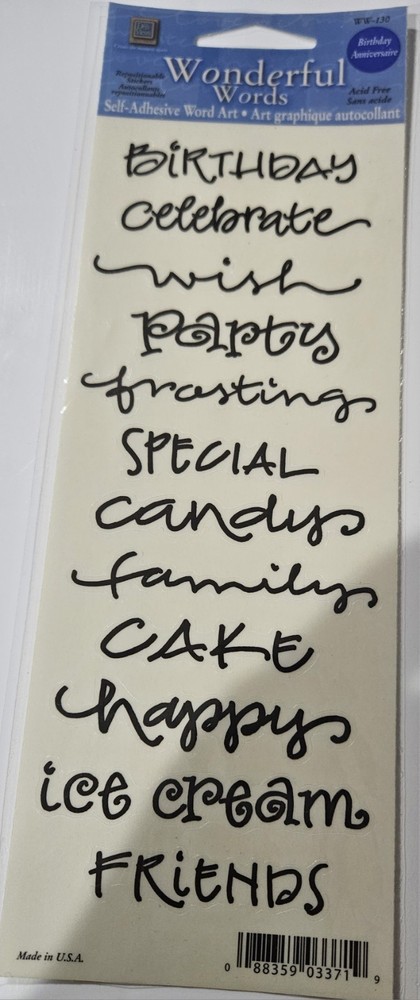 WW-130
Birthday
Anniversaire
Wonderful
Words
Repositionable
Stickers
Autocollants
repositionnables
Acid Free
Sans acide
Self-Adhesive Word Art • Art graphique autocollant
BiRTHDAY
celebrate
wish
party
frosting
SPECIAL
candy
family
CAKE
happy
ice cream
FRiENDS
Made in U.S.A.
0 88359 03371 9